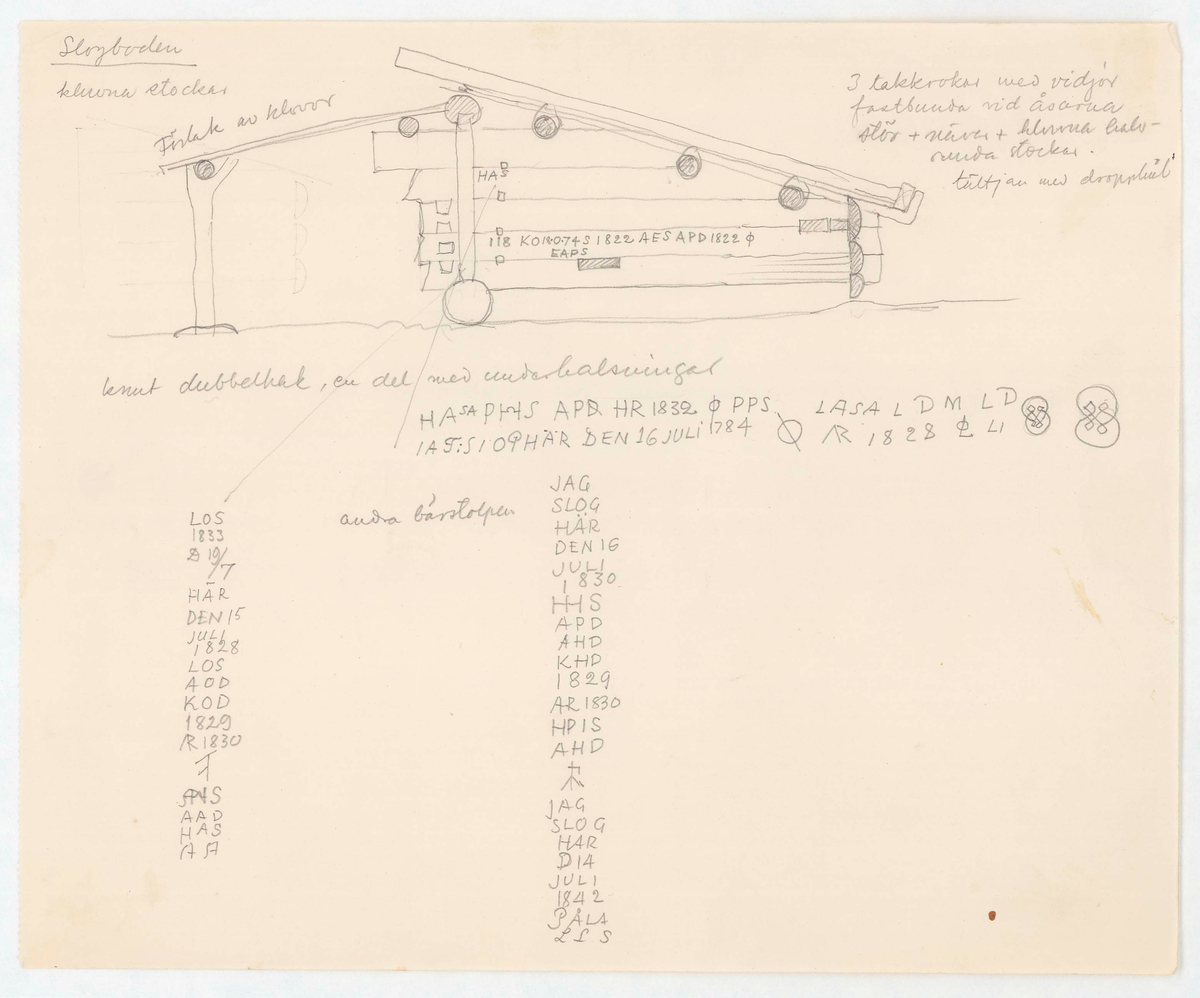 Slogboden
kluvna stockar
Förtak av klovor
3 takkrokar med vidjor
fastbunda vid åsarna
stör + näver + kluvna halv-
runda stockar.
tältjan med dropphål
HAS
118 KO 18 0.74 S 1822 AES APD 1822 ϕ
EAPS
knut dubbelhak, en del med underhalsningar
HASA PHS APD HR 1832 ϕ PPS
IAS:S1O9 HÄR DEN 16 JULI 1784
LASA L D M L D
AR 1828 LI
LOS
1833
D 19/7
HÄR
DEN 15
JULI
1828
LOS
AOD
KOD
1829
AR 1830
AHS
AAD
HAS
AA
andra bärstolpen
JAG
SLOG
HÄR
DEN 16
JULI
1830
HHS
APD
AHD
KHD
1829
AR 1830
HPIS
AHD
JAG
SLOG
HAR
D 14
JULI
1842
PÅLA
LLS